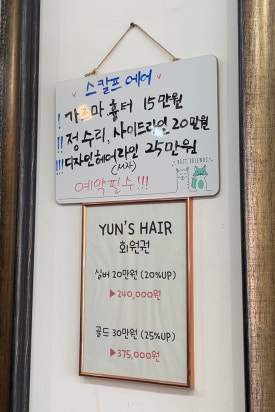 스칼프 에어
! 가르마 흉터 15만원
!! 정수리, 사이드라인 20만원
!!! 디자인헤어라인 25만원
(시자)
예약필수!!!
BEST FRIENDS!
YUN'S HAIR
회원권
실버 20만원 (20%UP)
▶240,000원
골드 30만원 (25%UP)
▶375,000원